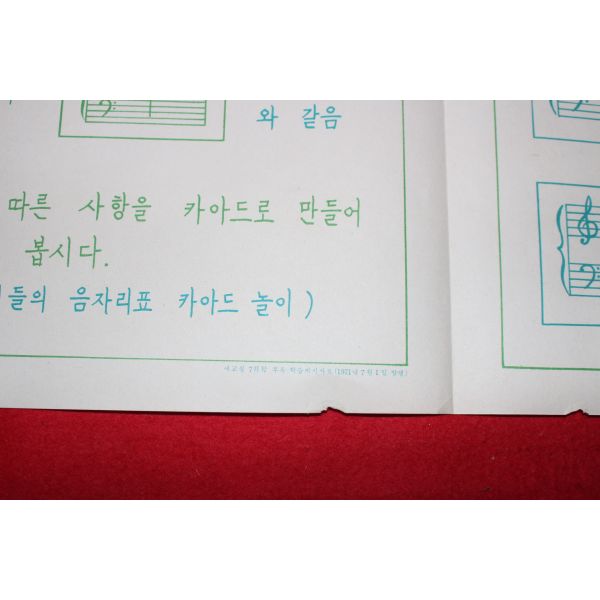 와 같음
따른 사항을 카아드로 만들어
봅시다.
들의 음자리표 카아드 놀이)
새교실 7월호 부록·학습 (1971년 7월 1일 발행)